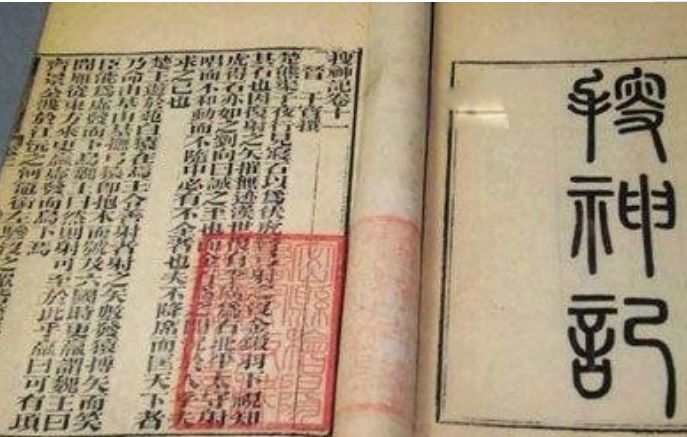 搜神記
搜神記卷十一
晉 干寶撰
楚熊渠子夜行見寢石以為伏虎彎弓射之沒金鎩羽下視知
其石也因復射之矢摧無迹漢世復有李廣為右北平太守射
虎得石亦如之劉向曰誠之至也而金石為之開況於人乎夫
唱而不和動而不隨中必有不全者也夫不降席而匡天下者
求之己也
楚王遊於苑白猿在焉王令善射者射之矢數發猿搏矢而笑
乃命由基由基撫弓猿即抱木而號及六國時更羸謂魏王曰
臣能為虛發而下鳥魏王曰然則射可至於此乎羸曰可有頃
聞雁從東方來更羸虛發而鳥下焉
齊景公渡於江沅之河黿銜左驂沒之